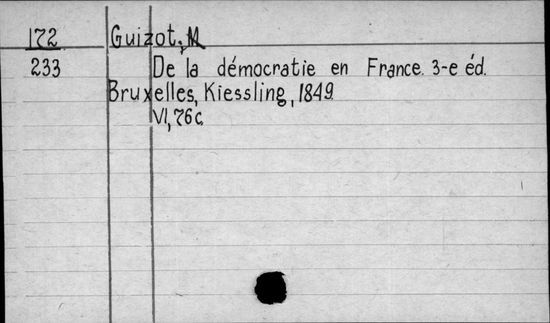 172 Guizot, M
233 De la démocratie en France. 3-e éd.
Bruxelles, Kiessling, 1849.
VI, 76 c.